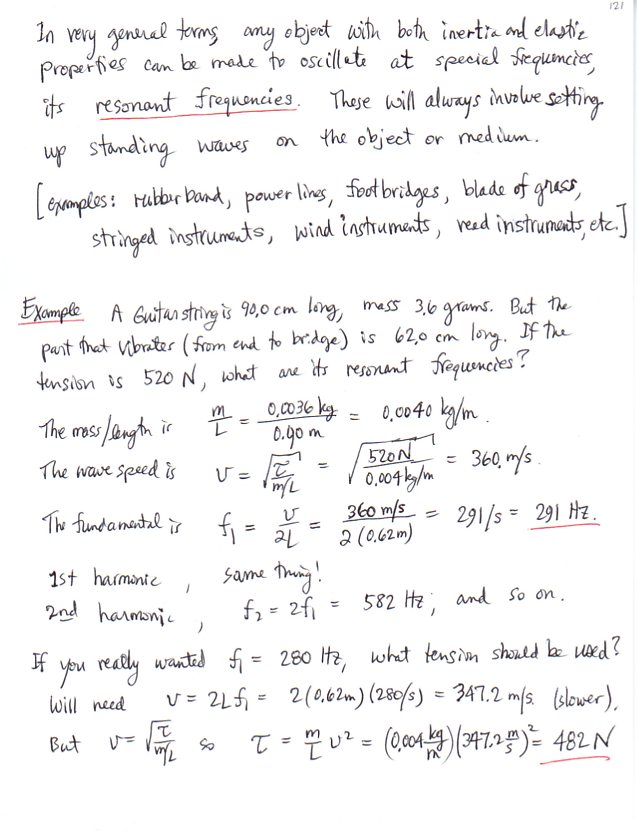 121
In very general terms, any object with both inertia and elastic
properties can be made to oscillate at special frequencies,
its resonant frequencies. These will always involve setting
up standing waves on the object or medium.
[examples: rubber band, power lines, footbridges, blade of grass,
stringed instruments, wind instruments, reed instruments, etc.]
Example A Guitar string is 90.0 cm long, mass 3.6 grams. But the
part that vibrates (from end to bridge) is 62.0 cm long. If the
tension is 520 N, what are its resonant frequencies?
The mass/length is m/L = 0.0036 kg / 0.90 m = 0.0040 kg/m.
The wave speed is v = √(τ / m/L) = √(520N / 0.004 kg/m) = 360. m/s.
The fundamental is f₁ = v/2L = 360 m/s / 2(0.62m) = 291/s = 291 Hz.
1st harmonic, same thing!
2nd harmonic, f₂ = 2f₁ = 582 Hz, and so on.
If you really wanted f₁ = 280 Hz, what tension should be used?
Will need v = 2Lf₁ = 2(0.62m)(280/s) = 347.2 m/s. (slower).
But v = √(τ / m/L) so τ = m/L v² = (0.004 kg/m)(347.2 m/s)² = 482 N